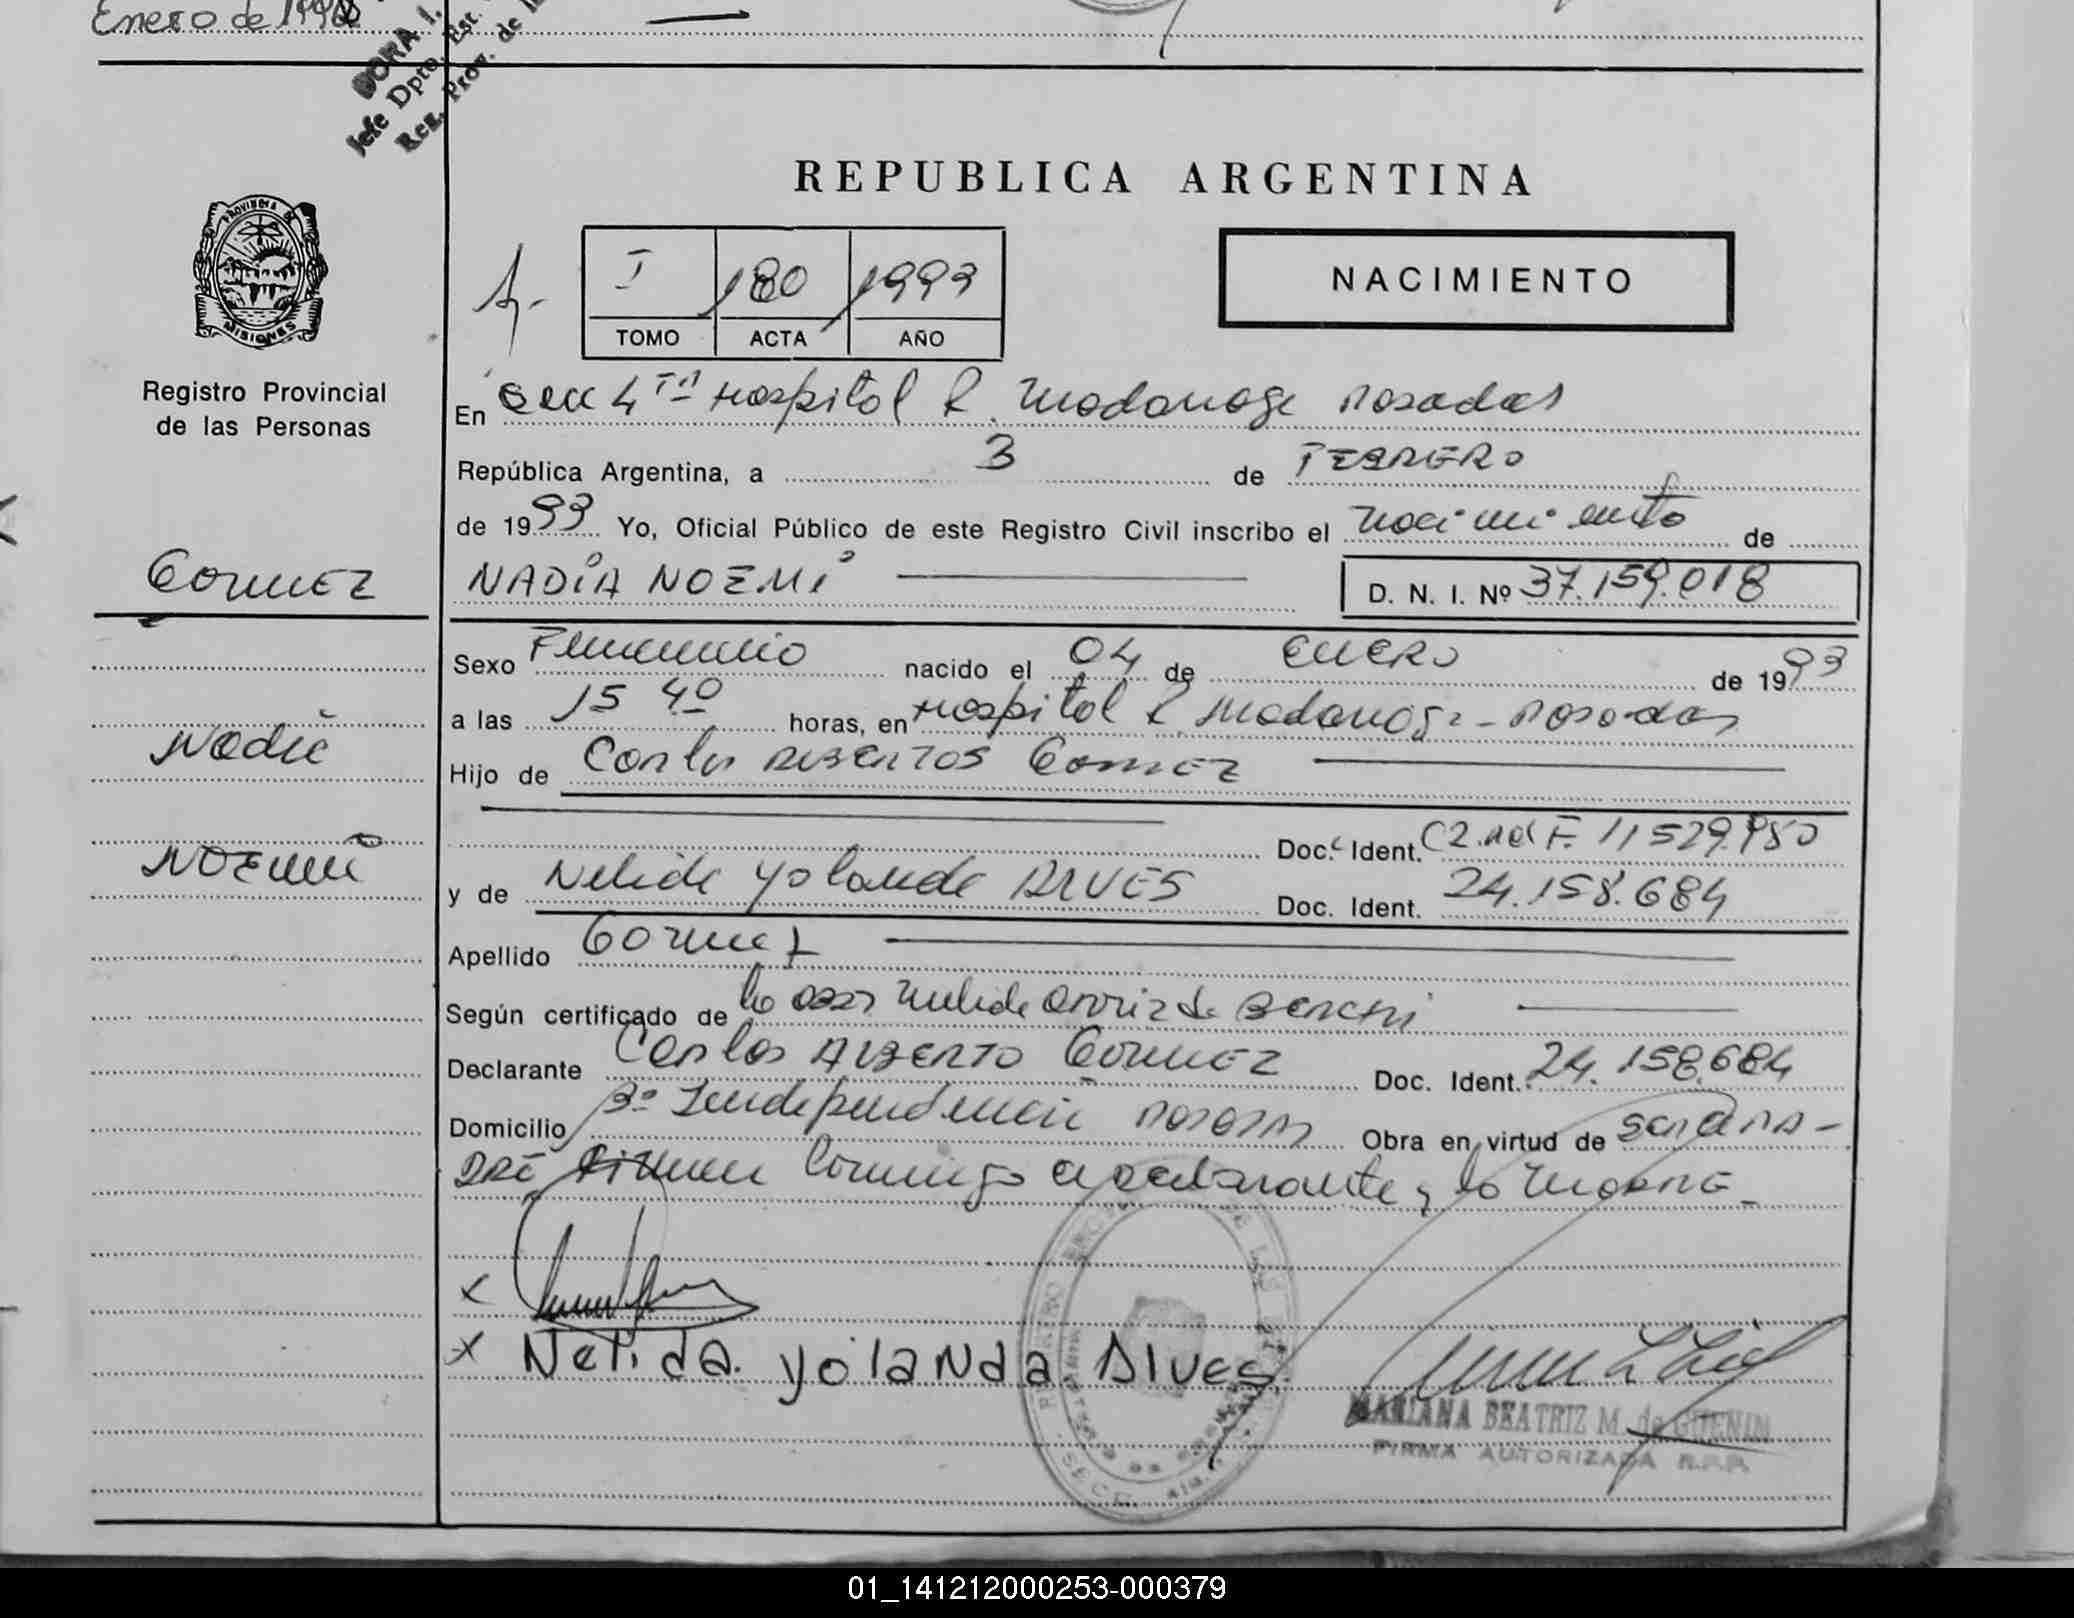 Enero de 199
DORA I.
Jefe Dpto. Est.
Reg. Prov. de
REPUBLICA ARGENTINA
PROVINCIA DE
MISIONES
I 180 1993
TOMO ACTA AÑO
NACIMIENTO
Registro Provincial
de las Personas
En Secc 4TA Hospital R. Madariaga Posadas
República Argentina, a 3 de FEBRERO
de 1993 Yo, Oficial Público de este Registro Civil inscribo el nacimiento de
GOMEZ
NADIA NOEMI
D. N. I. Nº 37.159.018
Sexo Femenino nacido el 04 de ENERO de 1993
a las 15 40 horas, en Hospital R Madariaga - Posadas
Nadia
Hijo de Carlos ALBERTOS GOMEZ
Doc. Ident. 11529.980
NOEMI
y de Nelida Yolanda ALVES Doc. Ident. 24.158.684
Apellido GOMEZ
Según certificado de la
Declarante Carlos ALBERTO GOMEZ Doc. Ident. 24.158.684
Domicilio Independencia POSADAS Obra en virtud de ser PA-
DRE Firman Conmigo el declarante y la MADRE-
x
x Nelida Yolanda Alves
MARIANA BEATRIZ M. de GUENIN
FIRMA AUTORIZADA R.P.P.
01_141212000253-000379